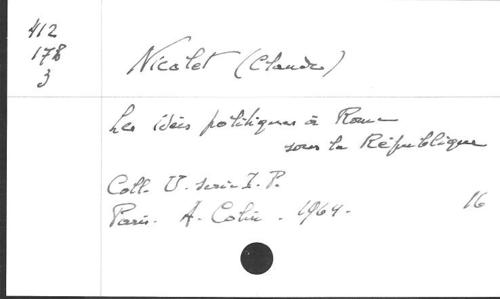 412
178
3
Nicolet (Claude)
Les idées politiques à Rome
sous la République
Coll. U. serie I. P.
Paris. A. Colin. 1964.
16